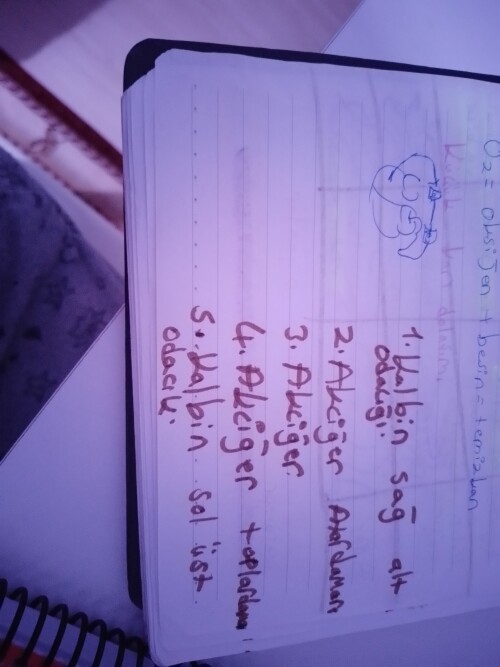 O2 = oksijen + besin = temiz kan
Küçük kan dolaşımı
1. Kalbin sağ alt
odacığı.
2. Akciğer Atardamarı
3. Akciğer.
4. Akciğer toplardamarı
5. Kalbin sol üst
odacık.